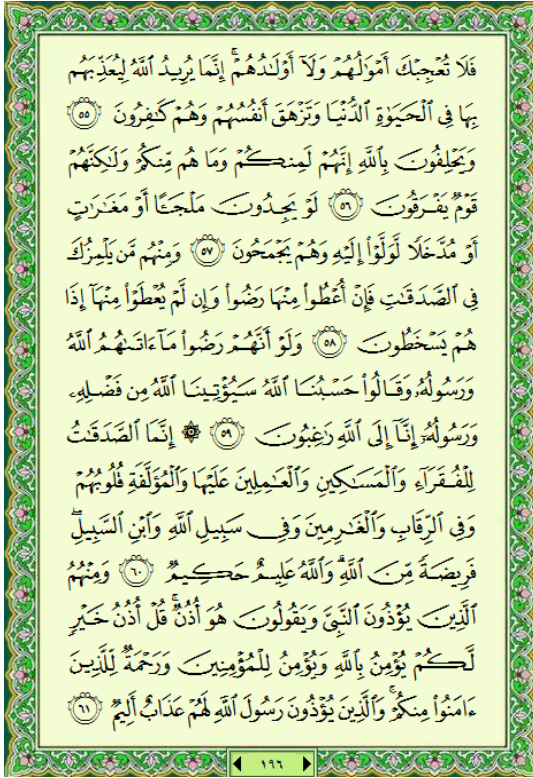 فَلَا تُعْجِبْكَ أَمْوَٰلُهُمْ وَلَآ أَوْلَٰدُهُمْ ۚ إِنَّمَا يُرِيدُ ٱللَّهُ لِيُعَذِّبَهُم
بِهَا فِى ٱلْحَيَوٰةِ ٱلدُّنْيَا وَتَزْهَقَ أَنفُسُهُمْ وَهُمْ كَٰفِرُونَ ٥٥
وَيَحْلِفُونَ بِٱللَّهِ إِنَّهُمْ لَمِنكُمْ وَمَا هُم مِّنكُمْ وَلَٰكِنَّهُمْ
قَوْمٌ يَفْرَقُونَ ٥٦ لَوْ يَجِدُونَ مَلْجَـًٔا أَوْ مَغَٰرَٰتٍ
أَوْ مُدَّخَلًا لَّوَلَّوْا۟ إِلَيْهِ وَهُمْ يَجْمَحُونَ ٥٧ وَمِنْهُم مَّن يَلْمِزُكَ
فِى ٱلصَّدَقَٰتِ فَإِنْ أُعْطُوا۟ مِنْهَا رَضُوا۟ وَإِن لَّمْ يُعْطَوْا۟ مِنْهَآ إِذَا
هُمْ يَسْخَطُونَ ٥٨ وَلَوْ أَنَّهُمْ رَضُوا۟ مَآ ءَاتَىٰهُمُ ٱللَّهُ
وَرَسُولُهُۥ وَقَالُوا۟ حَسْبُنَا ٱللَّهُ سَيُؤْتِينَا ٱللَّهُ مِن فَضْلِهِۦ
وَرَسُولُهُۥٓ إِنَّآ إِلَى ٱللَّهِ رَٰغِبُونَ ٥٩ ۞ إِنَّمَا ٱلصَّدَقَٰتُ
لِلْفُقَرَآءِ وَٱلْمَسَٰكِينِ وَٱلْعَٰمِلِينَ عَلَيْهَا وَٱلْمُؤَلَّفَةِ قُلُوبُهُمْ
وَفِى ٱلرِّقَابِ وَٱلْغَٰرِمِينَ وَفِى سَبِيلِ ٱللَّهِ وَٱبْنِ ٱلسَّبِيلِ ۖ
فَرِيضَةً مِّنَ ٱللَّهِ ۗ وَٱللَّهُ عَلِيمٌ حَكِيمٌ ٦٠ وَمِنْهُمُ
ٱلَّذِينَ يُؤْذُونَ ٱلنَّبِىَّ وَيَقُولُونَ هُوَ أُذُنٌ ۚ قُلْ أُذُنُ خَيْرٍ
لَّكُمْ يُؤْمِنُ بِٱللَّهِ وَيُؤْمِنُ لِلْمُؤْمِنِينَ وَرَحْمَةٌ لِّلَّذِينَ
ءَامَنُوا۟ مِنكُمْ ۚ وَٱلَّذِينَ يُؤْذُونَ رَسُولَ ٱللَّهِ لَهُمْ عَذَابٌ أَلِيمٌ ٦١
١٩٦